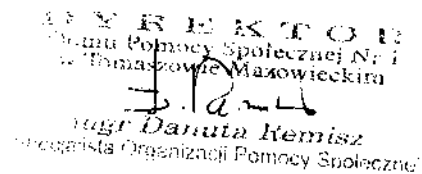 DYREKTOR
Domu Pomocy Społecznej Nr 1
w Tomaszowie Mazowieckim
mgr Danuta Remisz
specjalista Organizacji Pomocy Społecznej